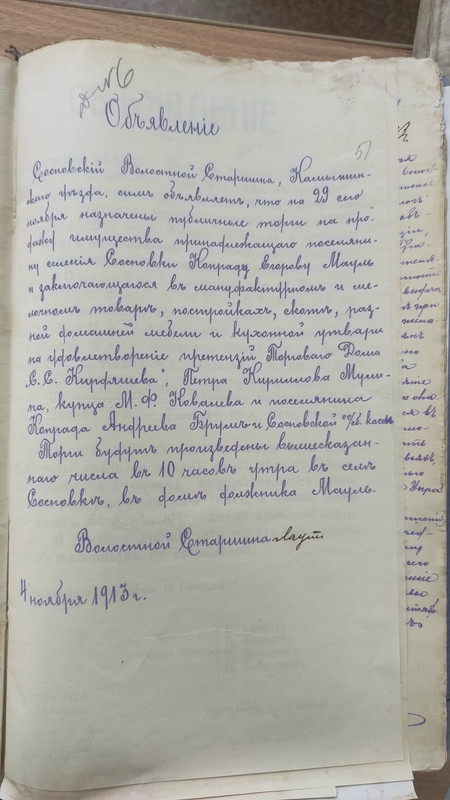 № 6
Объявленіе
51
Сосновскій Волостной Старшина, Камышин-
скаго уѣзда, симъ объявляетъ, что на 29 сего
ноября назначены публичные торги на про-
дажу имущества принадлежащаго поселяни-
ну селенія Сосновки Конраду Егорову Мауль
и заключающагося въ мануфактурномъ и ме-
лочномъ товарѣ, постройкахъ, скотѣ, раз-
ной домашней мебели и кухонной утвари
на удовлетвореніе претензій Торговаго Дома
"С.С. Кирфяшева", Петра Кириллова Мули-
на, купца М. Ф. Ковалева и поселянина
Конрада Андреева Брумъ и Сосновской касс
Торги будутъ произведены вышесказан-
наго числа въ 10 часовъ утра въ селѣ
Сосновкѣ, въ домѣ должника Мауль.
Волостной Старшина
4 ноября 1913 г.